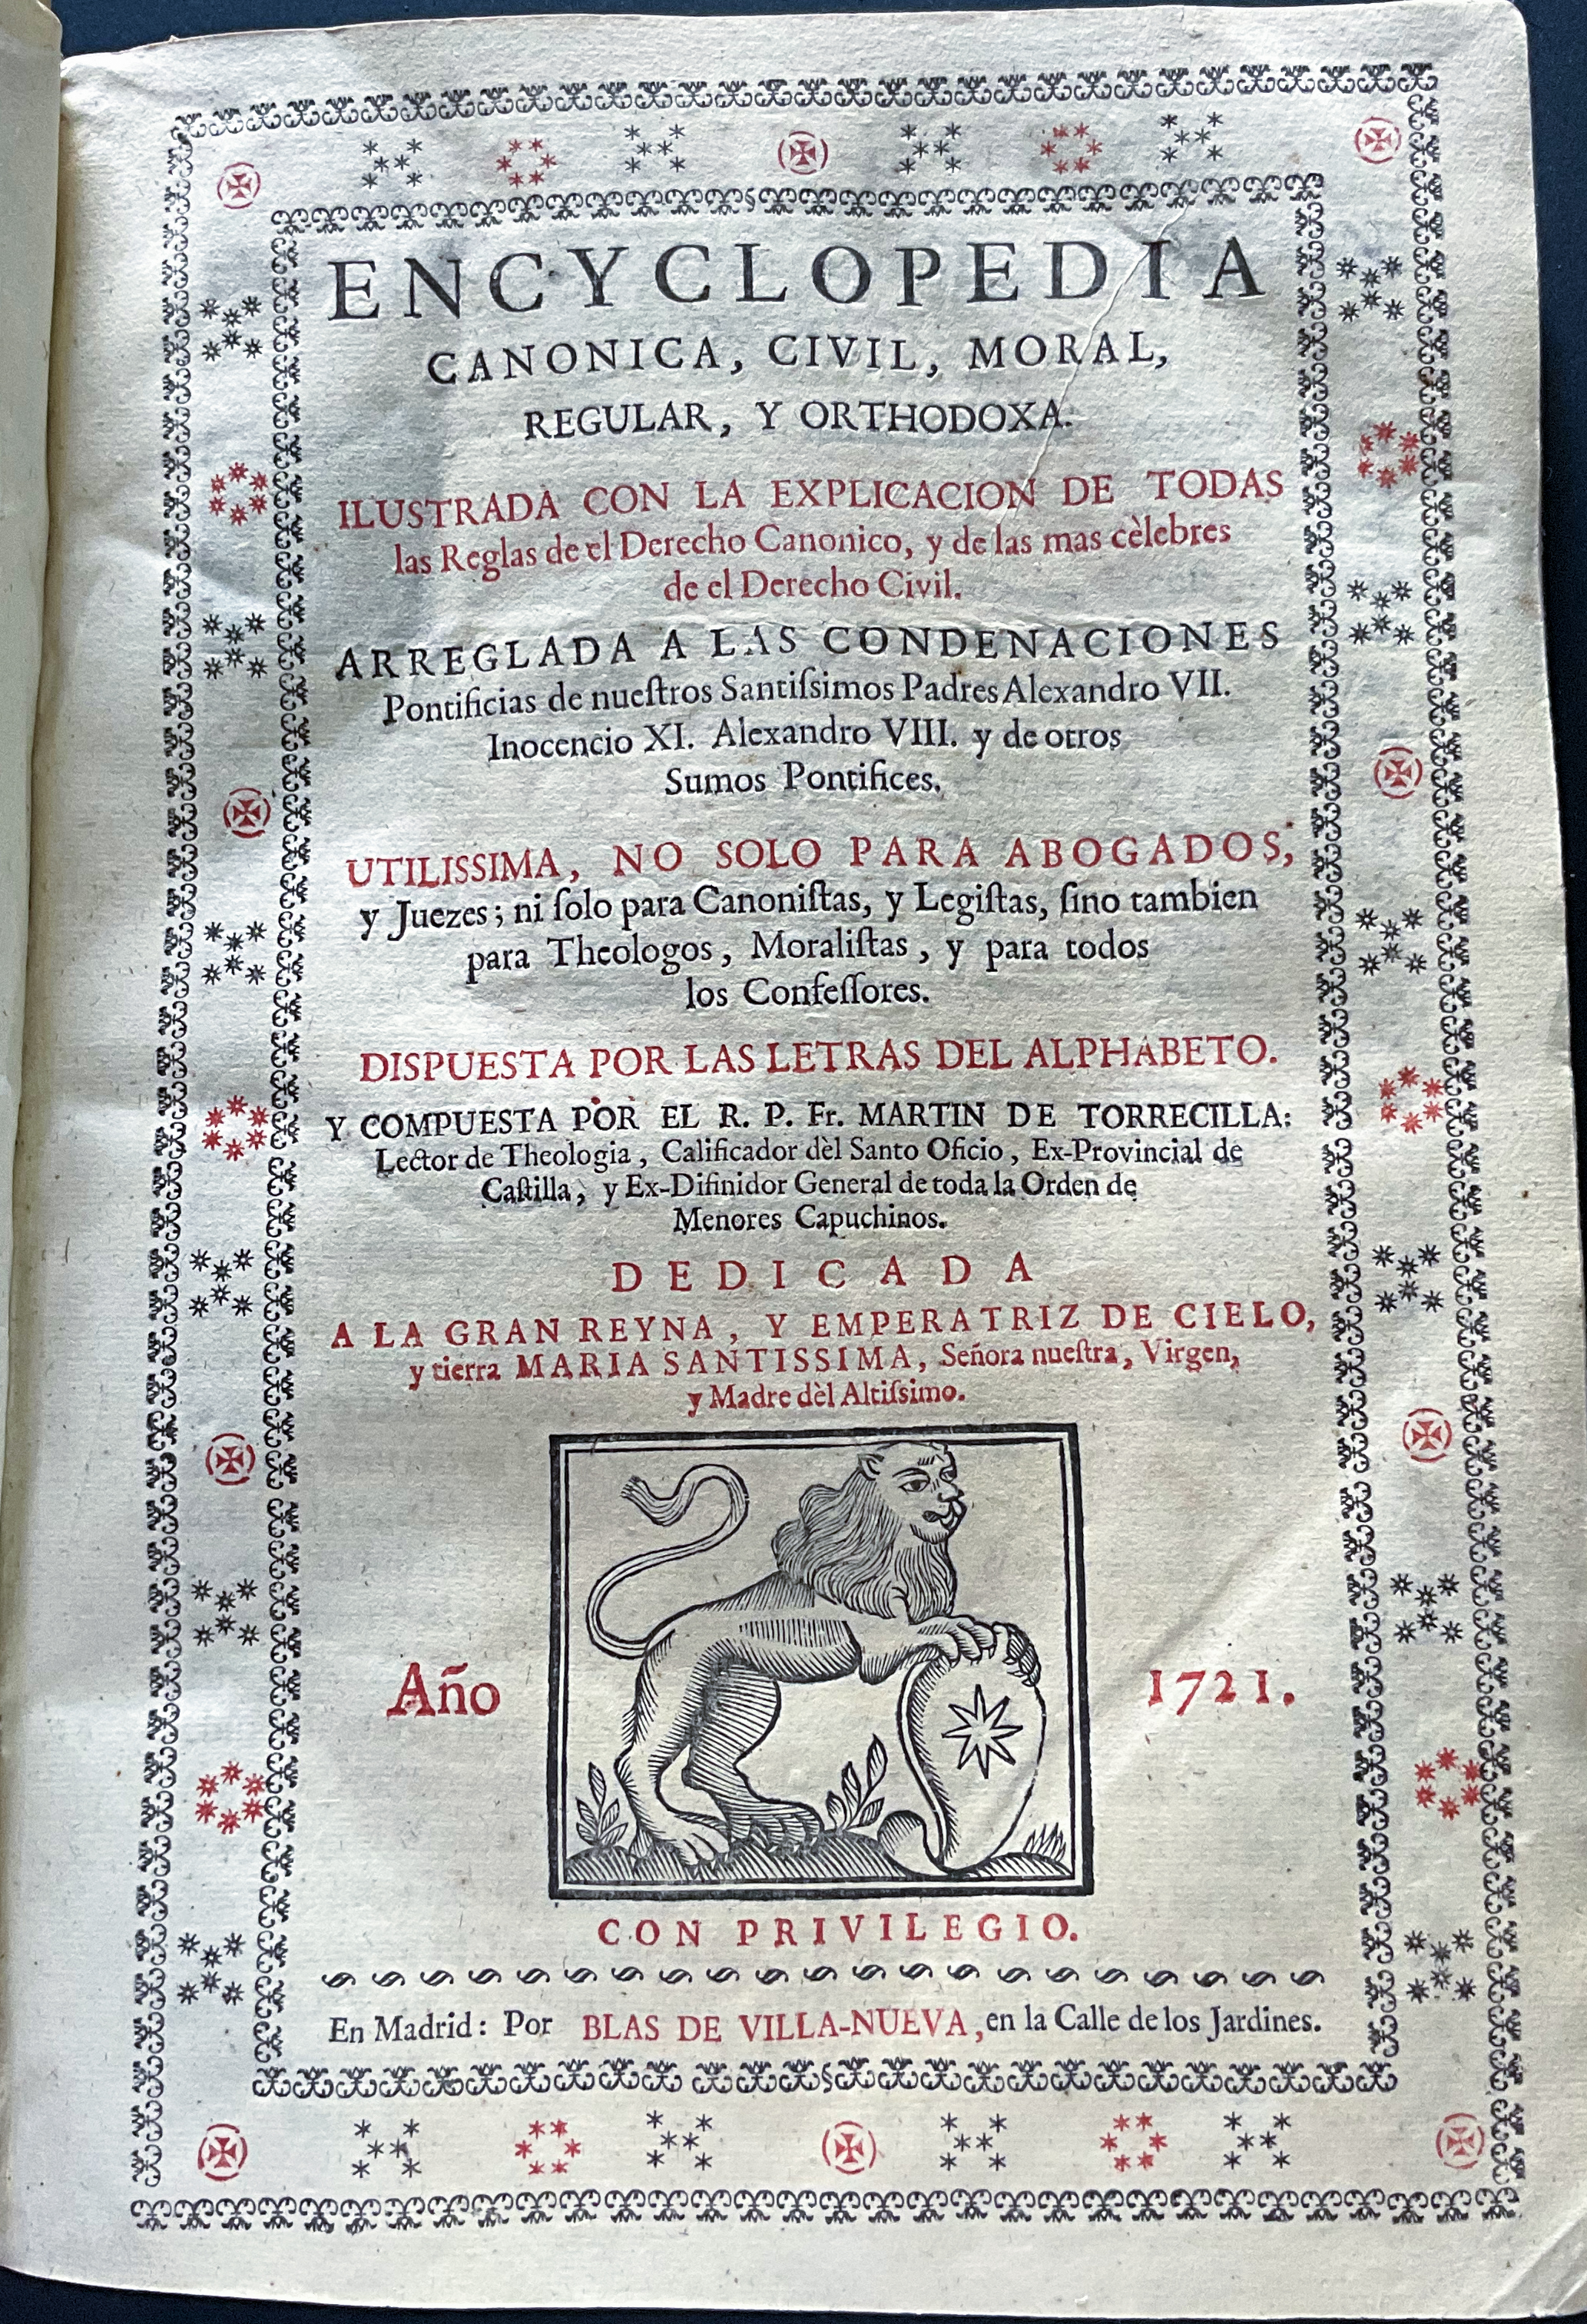 ENCYCLOPEDIA
CANONICA, CIVIL, MORAL,
REGULAR, Y ORTHODOXA.
ILUSTRADA CON LA EXPLICACION DE TODAS
las Reglas de el Derecho Canonico, y de las mas cèlebres
de el Derecho Civil.
ARREGLADA A LAS CONDENACIONES
Pontificias de nueſtros Santiſsimos Padres Alexandro VII.
Inocencio XI. Alexandro VIII. y de otros
Sumos Pontifices.
UTILISSIMA, NO SOLO PARA ABOGADOS,
y Juezes; ni ſolo para Canoniſtas, y Legiſtas, ſino tambien
para Theologos, Moraliſtas, y para todos
los Confeſſores.
DISPUESTA POR LAS LETRAS DEL ALPHABETO.
Y COMPUESTA POR EL R. P. Fr. MARTIN DE TORRECILLA:
Lector de Theologia, Calificador dèl Santo Oficio, Ex-Provincial de
Caſtilla, y Ex-Difinidor General de toda la Orden de
Menores Capuchinos.
DEDICADA
A LA GRAN REYNA, Y EMPERATRIZ DE CIELO,
y tierra MARIA SANTISSIMA, Señora nueſtra, Virgen,
y Madre dèl Altiſsimo.
Año 1721.
CON PRIVILEGIO.
En Madrid: Por BLAS DE VILLA-NUEVA, en la Calle de los Jardines.